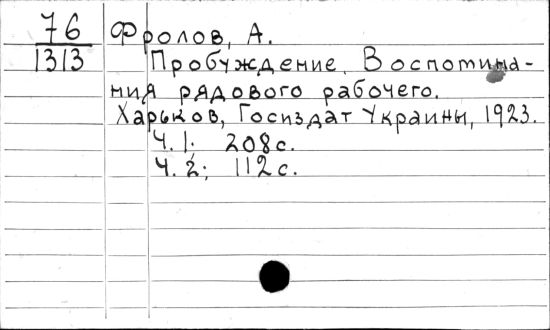 76 Фролов, А.
1313 Пробуждение. Воспомина-
ния рядового рабочего.
Харьков, Госиздат Украины, 1923.
Ч. 1; 208 с.
Ч. 2; 112 с.